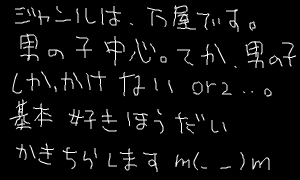 ジャンルは、万屋です。
男の子中心。てか、男の子
しか、かけない orz‥。
基本 好きほうだい
かきちらします m(_ _)m